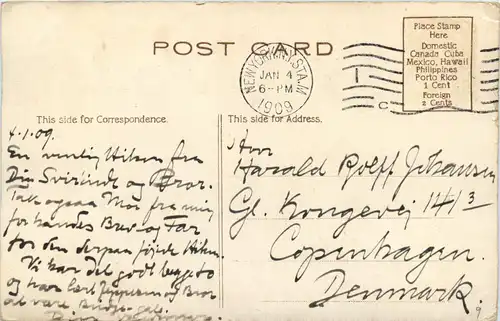 POST CARD
NEW YORK, N.Y. STA. M
JAN 4
6-PM
1909
Place Stamp
Here
Domestic
Canada Cuba
Mexico, Hawaii
Philippines
Porto Rico
1 Cent
Foreign
2 Cents
C
This side for Correspondence.
4.1.09.
En venlig Hilsen fra
Din Svigerinde og Bror.
Tak ogsaa Mor fra mig
for hendes Brev og Far
for den derpaa føjede Hilsen.
Vi har det godt begge to
og har Jeppesen og Bror
This side for Address.
Herr
Harald Rolff Johansen
Gl. Kongevej 141 3
Copenhagen.
Denmark.